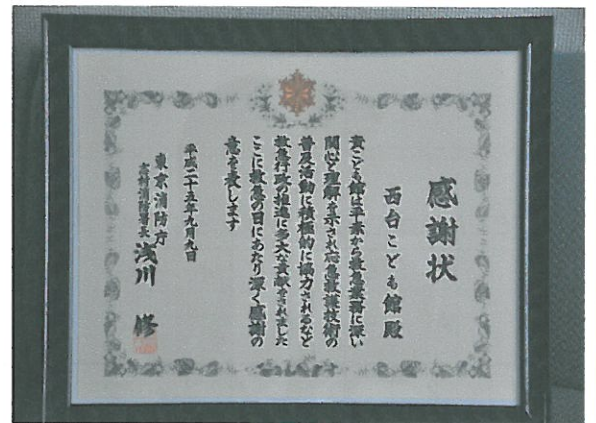 感謝状
西台こども館殿
貴こども館は平素から救急業務に深い
関心と理解を示され応急救護技術の
普及活動に積極的に協力されるなど
救急行政の推進に多大な貢献をされました
ここに救急の日にあたり深く感謝の
意を表します
平成二十五年九月九日
東京消防庁
志村消防署長 浅川 修